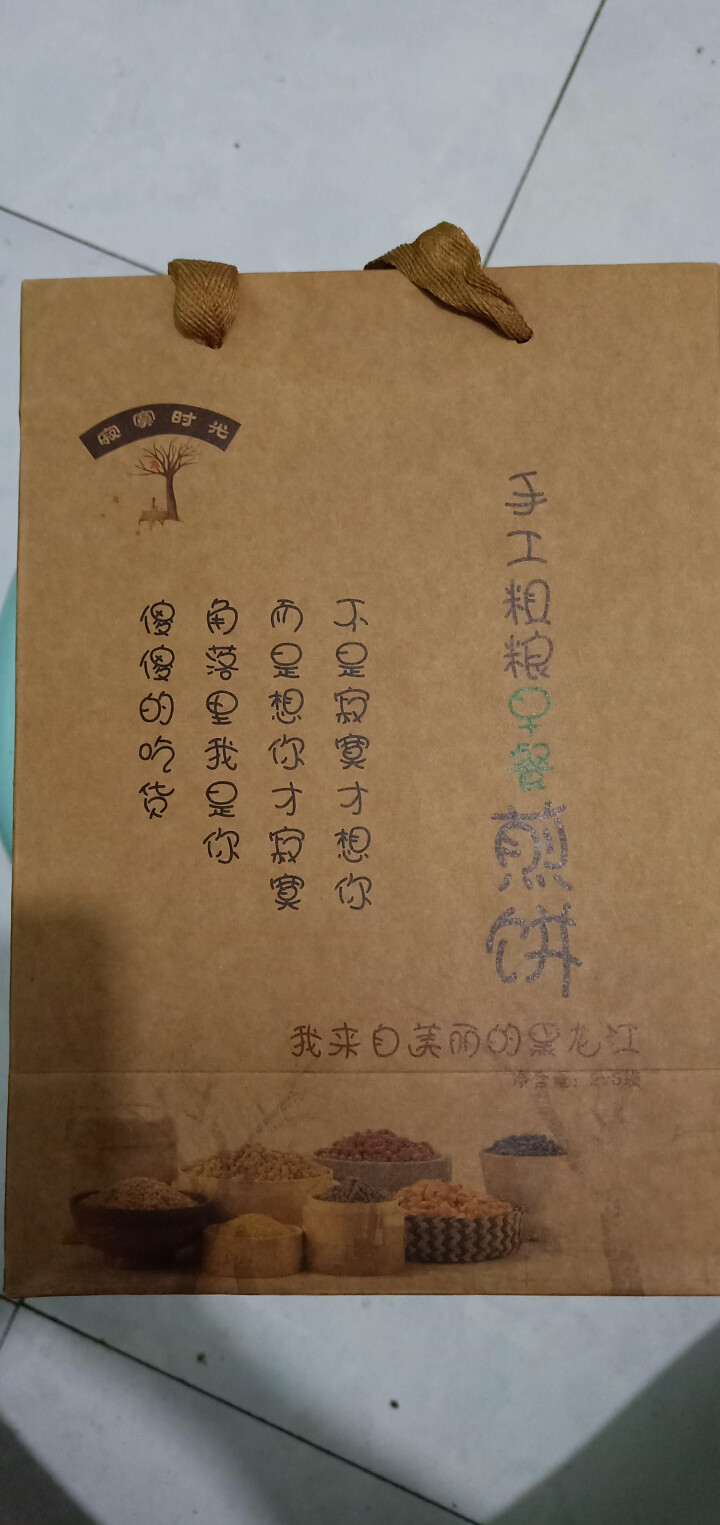 寂寞时光
手工粗粮早餐煎饼
不是寂寞才想你
而是想你才寂寞
角落里我是你
傻傻的吃货
我来自美丽的黑龙江
净含量：